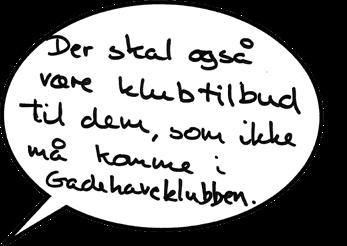 Der skal også
være klubtilbud
til dem, som ikke
må komme i
Gadehaveklubben.